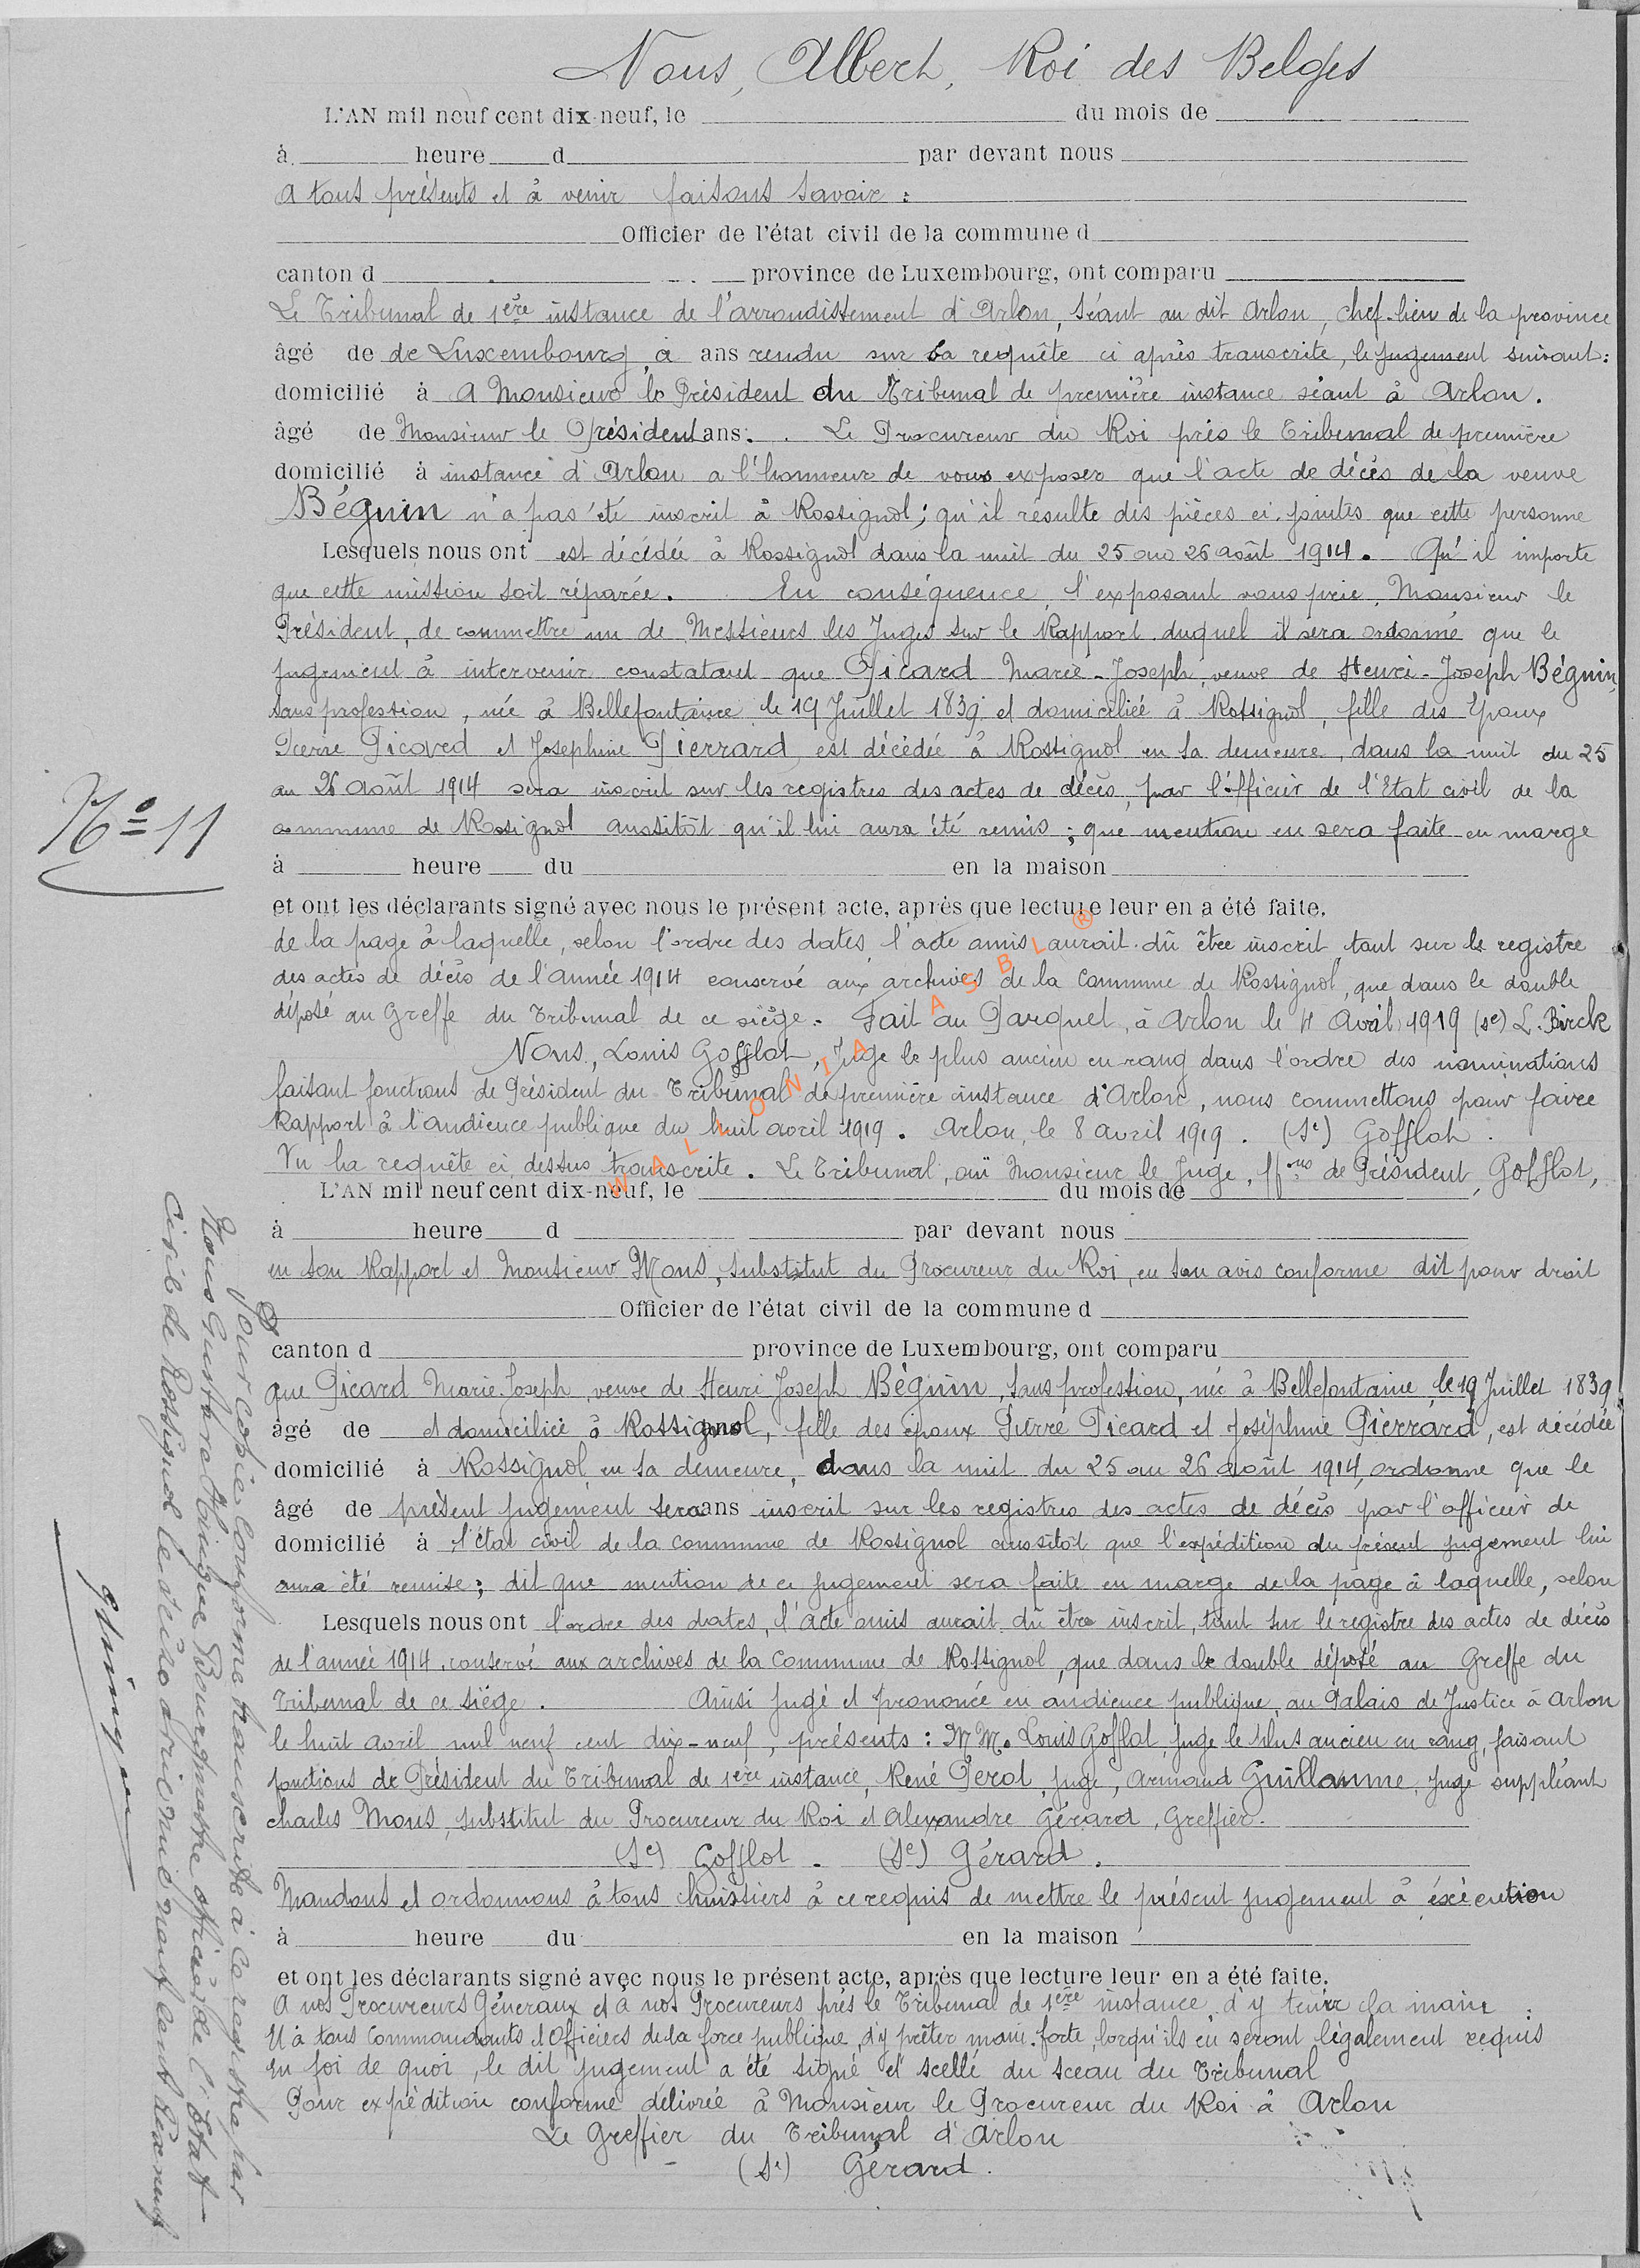 Nous, Albert, Roi des Belges
L'AN mil neuf cent dix-neuf, le du mois de
à heure d par devant nous
A tous présents et à venir faisons savoir :
Officier de l'état civil de la commune d
canton d province de Luxembourg, ont comparu
Le Tribunal de 1ère instance de l'arrondissement d'Arlon, séant au dit Arlon, chef-lieu de la province
âgé de de Luxembourg, a ans rendu sur la requête ci après transcrite, le jugement suivant:
domicilié à A Monsieur le Président du Tribunal de première instance séant à Arlon.
âgé de Monsieur le Président ans. Le Procureur du Roi près le Tribunal de première
domicilié à instance d'Arlon a l'honneur de vous exposer que l'acte de décès de la veuve
Béguin n'a pas été inscrit à Rossignol; qu'il résulte des pièces ci-jointes que cette personne
Lesquels nous ont est décédée à Rossignol dans la nuit du 25 au 26 août 1914. Qu'il importe
que cette mission soit réparée. En conséquence, l'exposant vous prie, Monsieur le
Président, de commettre un de Messieurs les Juges sur le Rapport duquel il sera ordonné que le
jugement à intervenir constatant que Picard Marie-Joseph, veuve de Henri-Joseph Béguin,
sans profession, née à Bellefontaine le 19 Juillet 1839 et domiciliée à Rossignol, fille des Epoux
Pierre Picard et Josephine Pierrard, est décédée à Rossignol en sa demeure, dans la nuit du 25
au 26 août 1914 sera inscrit sur les registres des actes de décès, par l'officier de l'Etat civil de la
commune de Rossignol aussitôt qu'il lui aura été remis; que mention en sera faite en marge
N° 11
à heure du en la maison
et ont les déclarants signé avec nous le présent acte, après que lecture leur en a été faite.
de la page à laquelle, selon l'ordre des dates, l'acte amis aurait dû être inscrit, tant sur le registre
des actes de décès de l'année 1914 conservé aux archives de la Commune de Rossignol, que dans le double
déposé au Greffe du Tribunal de ce siège. Fait au Parquet, à Arlon le 4 Avril 1919 (sé) L. Birck
Nous, Louis Gofflot, Juge le plus ancien en rang dans l'ordre des nominations
faisant fonctions de Président du Tribunal de première instance d'Arlon, nous commettons pour faire
Rapport à l'audience publique du huit avril 1919. Arlon, le 8 avril 1919. (Sé) Gofflot.
Vu la requête ci dessus transcrite. Le Tribunal, ouï Monsieur le Juge, ff.ons de Président, Gofflot,
WALLONIA ASBL ®
L'AN mil neuf cent dix-neuf, le du mois de
à heure d par devant nous
en son Rapport et Monsieur Mons, Substitut du Procureur du Roi, en son avis conforme dit pour droit
Officier de l'état civil de la commune d
canton d province de Luxembourg, ont comparu
que Picard Marie-Joseph, veuve de Henri Joseph Béguin, sans profession, née à Bellefontaine, le 19 Juillet 1839
âgé de et domiciliée à Rossignol, fille des époux Pierre Picard et Joséphine Pierrard, est décédée
domicilié à Rossignol en sa demeure, dans la nuit du 25 au 26 août 1914, ordonne que le
âgé de présent jugement sera ans inscrit sur les registres des actes de décès par l'officier de
domicilié à l'état civil de la commune de Rossignol aussitôt que l'expédition du présent jugement lui
aura été remise; dit que mention de ce jugement sera faite en marge de la page à laquelle, selon
Lesquels nous ont l'ordre des dates, l'acte omis aurait dû être inscrit, tant sur le registre des actes de décès
de l'année 1914, conservé aux archives de la Commune de Rossignol, que dans le double déposé au Greffe du
Tribunal de ce siège. Ainsi jugé et prononcé en audience publique, au Palais de Justice à Arlon
le huit avril mil neuf cent dix-neuf, présents : MM. Louis Gofflot, Juge le plus ancien en rang, faisant
fonctions de Président du Tribunal de 1ère instance, René Perot, Juge, Armand Guillaume, Juge suppléant
Charles Mons, Substitut du Procureur du Roi et Alexandre Gérard, Greffier.
(Sé) Gofflot. (Sé) Gérard.
Mandons et ordonnons à tous huissiers à ce requis de mettre le présent jugement à éxécution
à heure du en la maison
et ont les déclarants signé avec nous le présent acte, après que lecture leur en a été faite.
A nos Procureurs Généraux et à nos Procureurs près le Tribunal de 1ère instance d'y tenir la main
Et à tous Commandants et Officiers de la force publique, d'y prêter main-forte, lorqu'ils en seront légalement requis
En foi de quoi, le dit jugement a été signé et scellé du sceau du Tribunal
Pour expédition conforme délivrée à Monsieur le Procureur du Roi à Arlon
Le Greffier du Tribunal d'Arlon
(Sé) Gérard.
Pour copie conforme transcrite à ce registre par
Nous Gustave Hainque Bourgmestre officier de l'état
Civil de Rossignol le avril mil neuf cent dix neuf